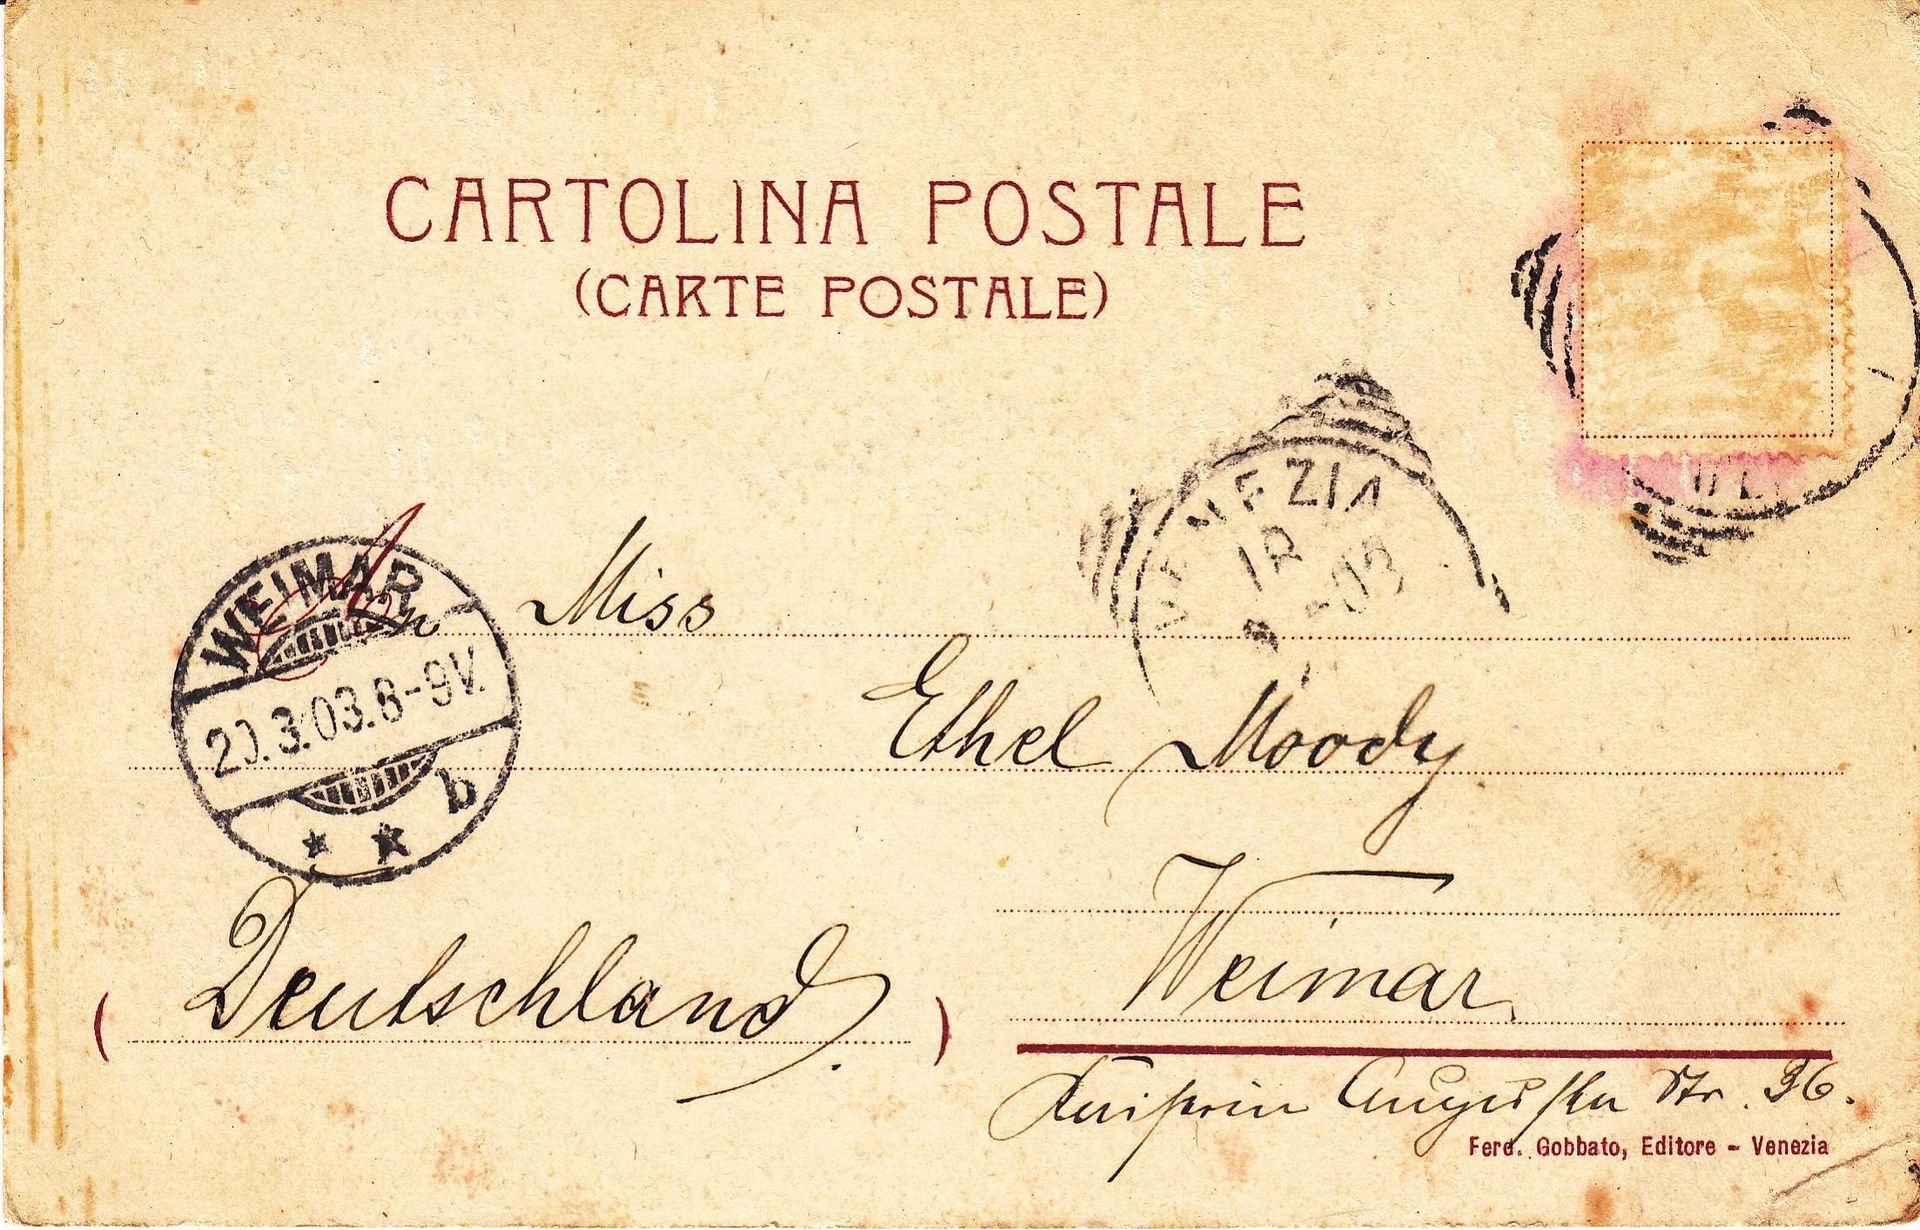 CARTOLINA POSTALE
(CARTE POSTALE)
VENEZIA
03
WEIMAR
20.3.03.8-9V.
* * b
An Miss
Ethel Moody
Weimar
Deutschland.
Kaiserin Augusta Str. 36.
Ferd. Gobbato, Editore - Venezia